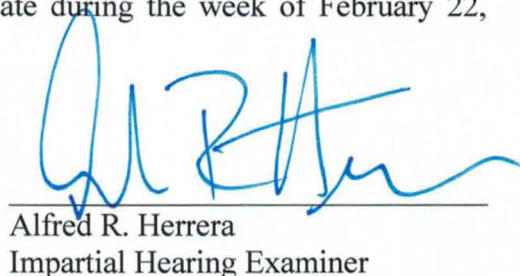 ate during the week of February 22,
Alfred R. Herrera
Impartial Hearing Examiner